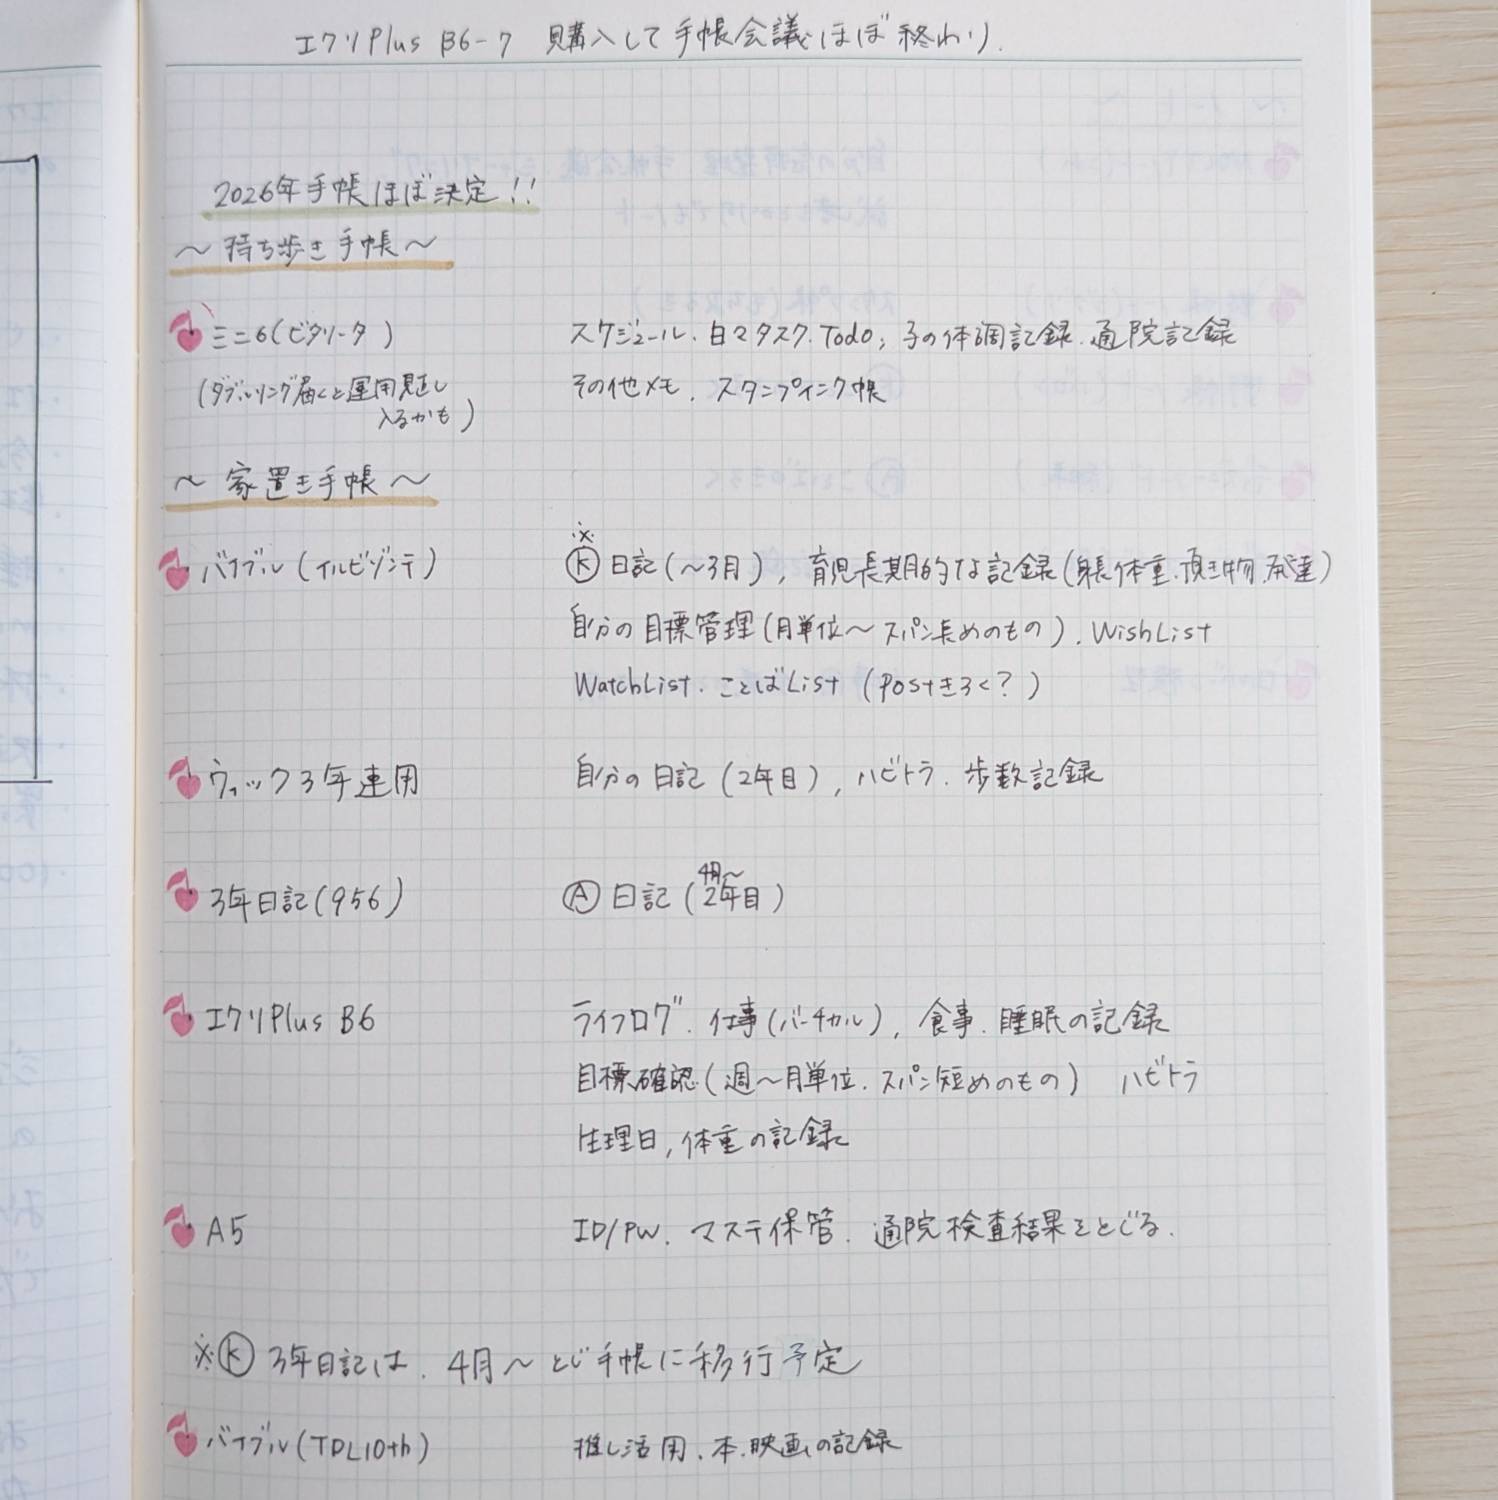 エクリPlus B6-7 購入して手帳会議ほぼ終わり.
2026年手帳ほぼ決定!!
〜持ち歩き手帳〜
ミニ6(ビタリータ) スケジュール.日々タスク.Todo,子の体調記録.通院記録
(ダブルリング届くと運用見直し その他メモ.スタンプインク帳
入るかも)
〜家置き手帳〜
※
バイブル(イルビゾンテ) Ⓚ日記(〜3月),育児長期的な記録(身長体重.頂き物.発達)
自分の目標管理(月単位〜スパン長めのもの).WishList
WatchList.ことばList (Postきろく?)
ウィック3年連用 自分の日記(2年目),ハビトラ.歩数記録
4月〜
3年日記(956) Ⓐ日記(2年目)
エクリPlus B6 ライフログ.仕事(バーチカル),食事.睡眠の記録
目標確認(週〜月単位.スパン短めのもの) ハビトラ
生理日,体重の記録
A5 ID/PW.マステ保管.通院検査結果をとじる.
※Ⓚ3年日記は.4月〜とじ手帳に移行予定
バイブル(TDL10th) 推し活用.本.映画の記録